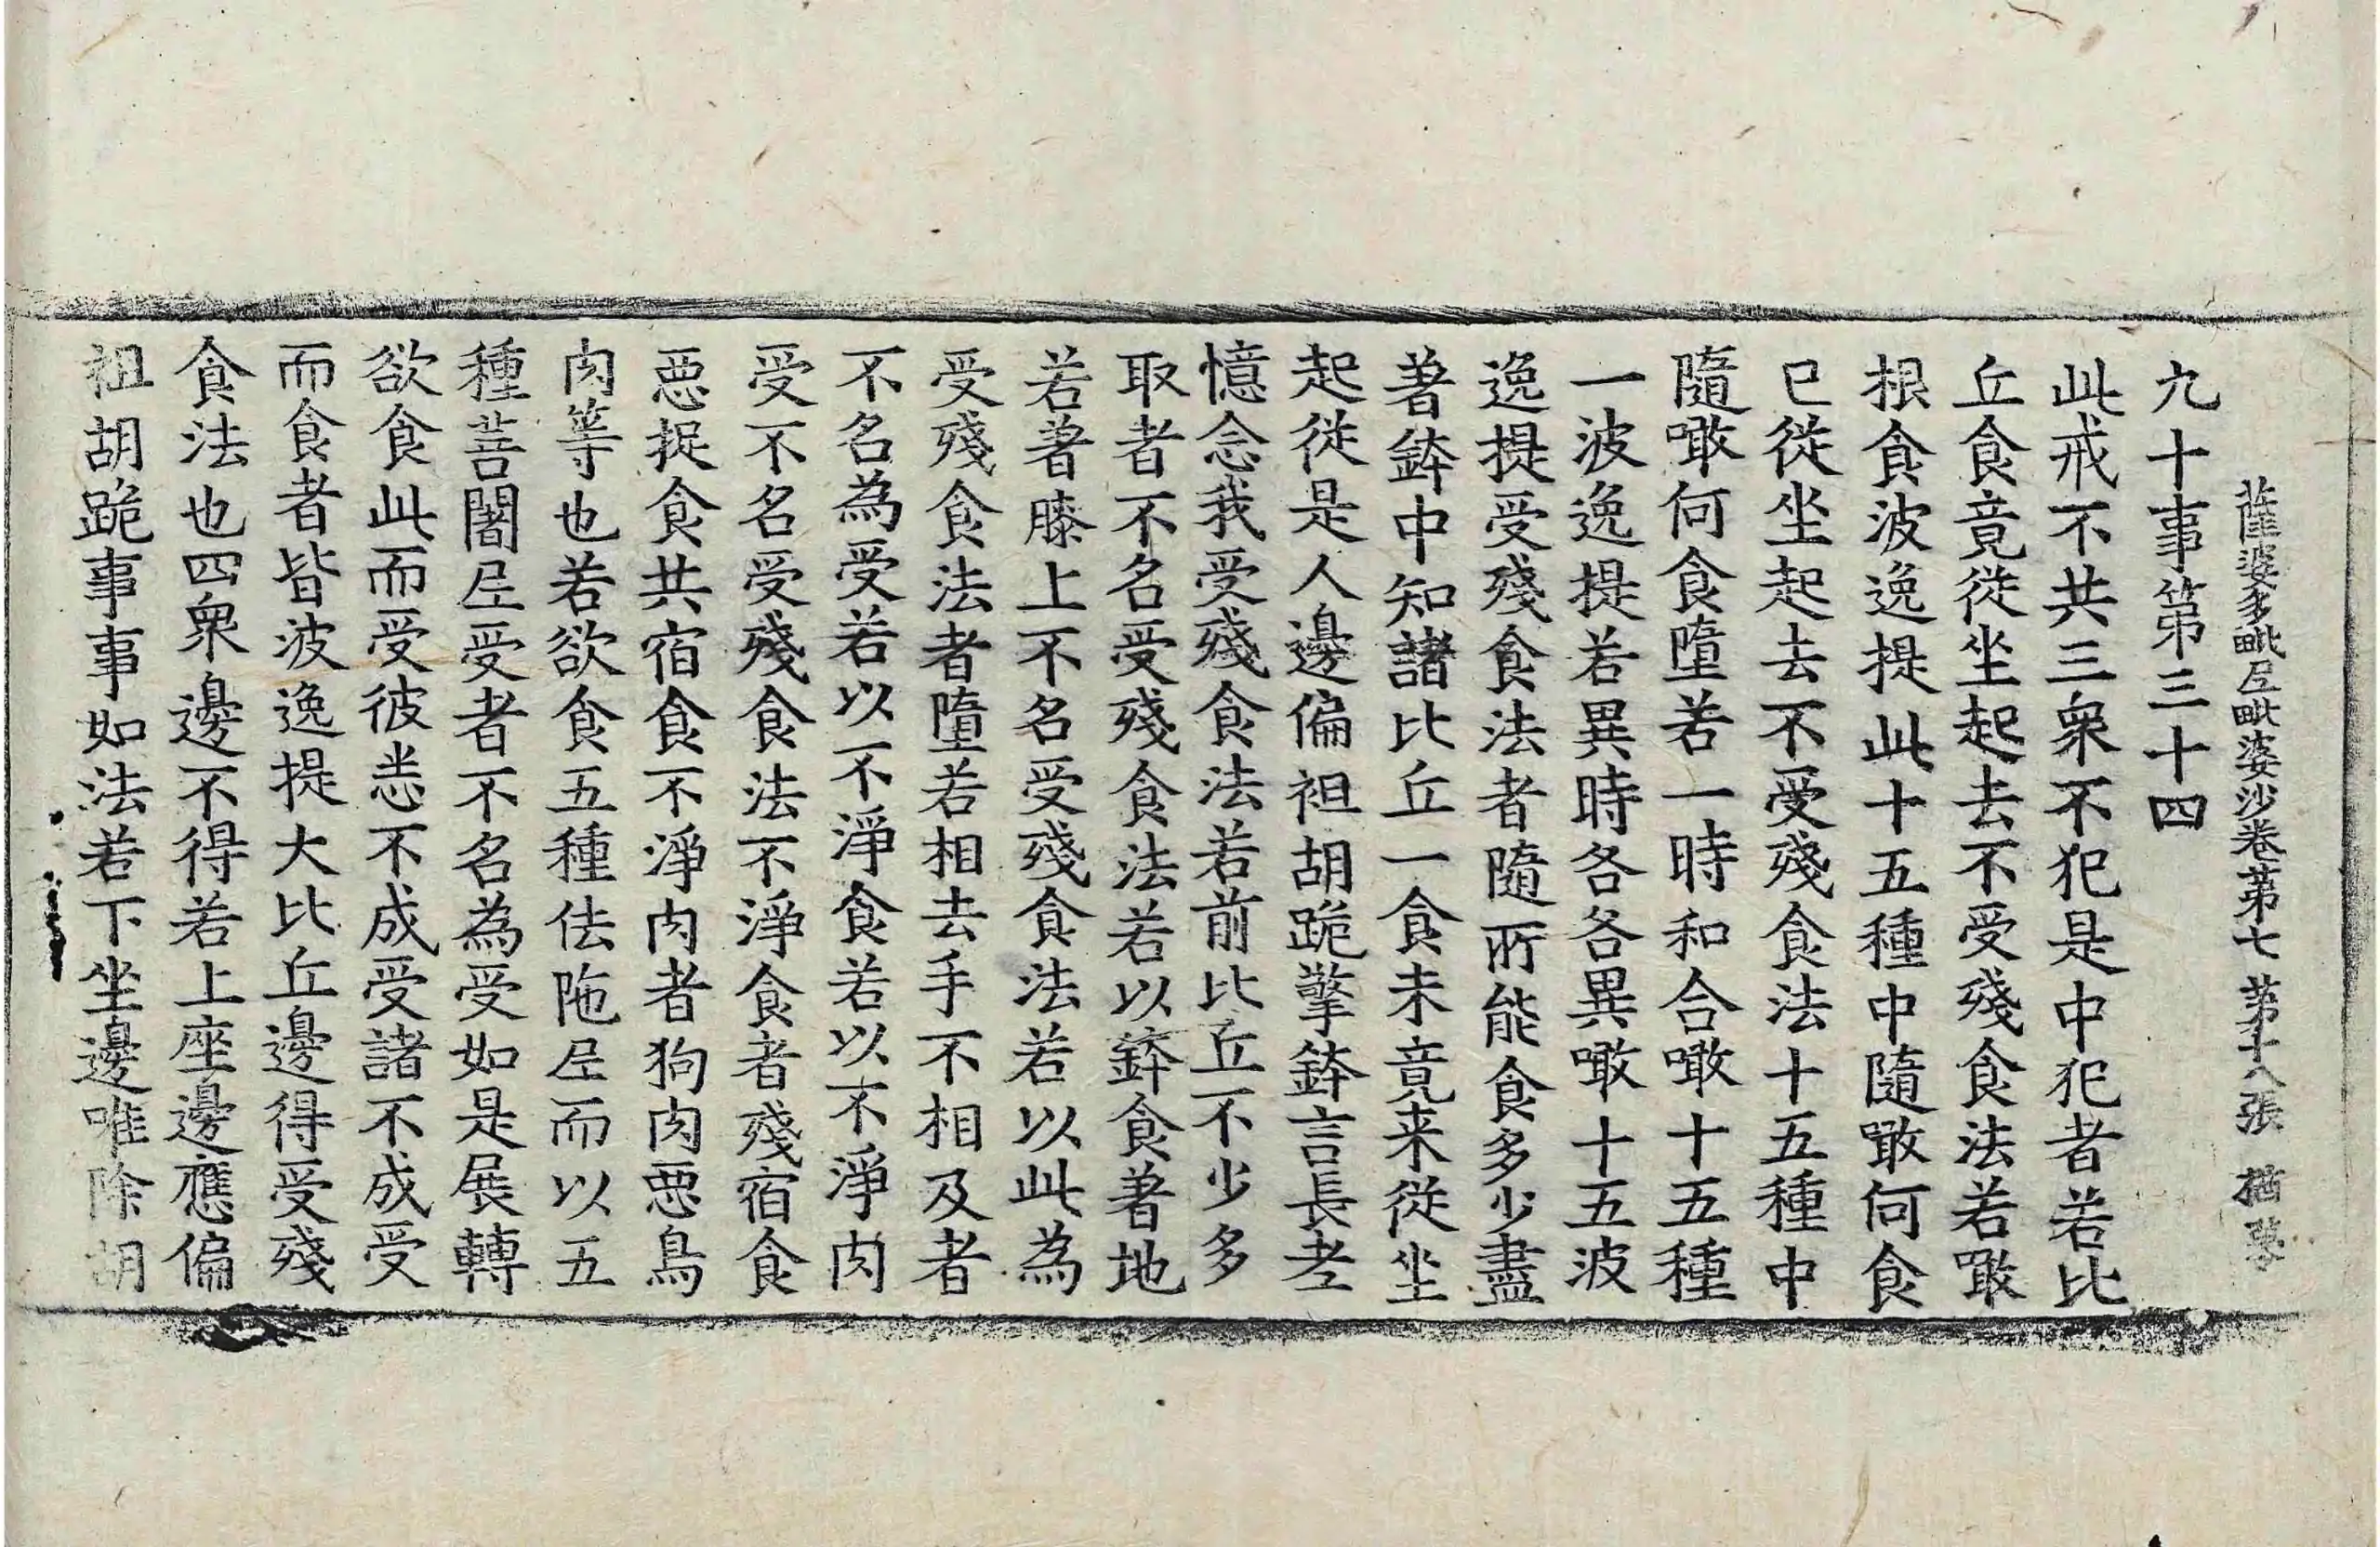 薩婆多毗尼毗婆沙卷第七 第十八張 楢
九十事第三十四
此戒不共三衆不犯是中犯者若比
丘食竟從坐起去不受殘食法若噉
根食波逸提此十五種中隨噉何食
已從坐起去不受殘食法十五種中
隨噉何食墮若一時和合噉十五種
一波逸提若異時各各異噉十五波
逸提受殘食法者隨所能食多少盡
著鉢中知諸比丘一食未竟来從坐
起從是人邊偏袒胡跪擎鉢言長老
憶念我受殘食法若前比丘不少多
取者不名受殘食法若以鉢食著地
若著膝上不名受殘食法若以此為
受殘食法者墮若相去手不相及者
不名為受若以不淨食若以不淨肉
受不名受殘食法不淨食者殘宿食
惡捉食共宿食不淨肉者狗肉惡鳥
肉等也若欲食五種佉陁尼而以五
種蒭闍尼受者不名為受如是展轉
欲食此而受彼悉不成受諸不成受
而食者皆波逸提大比丘邊得受殘
食法也四衆邊不得若上座邊應偏
袒胡跪事事如法若下坐邊唯除胡